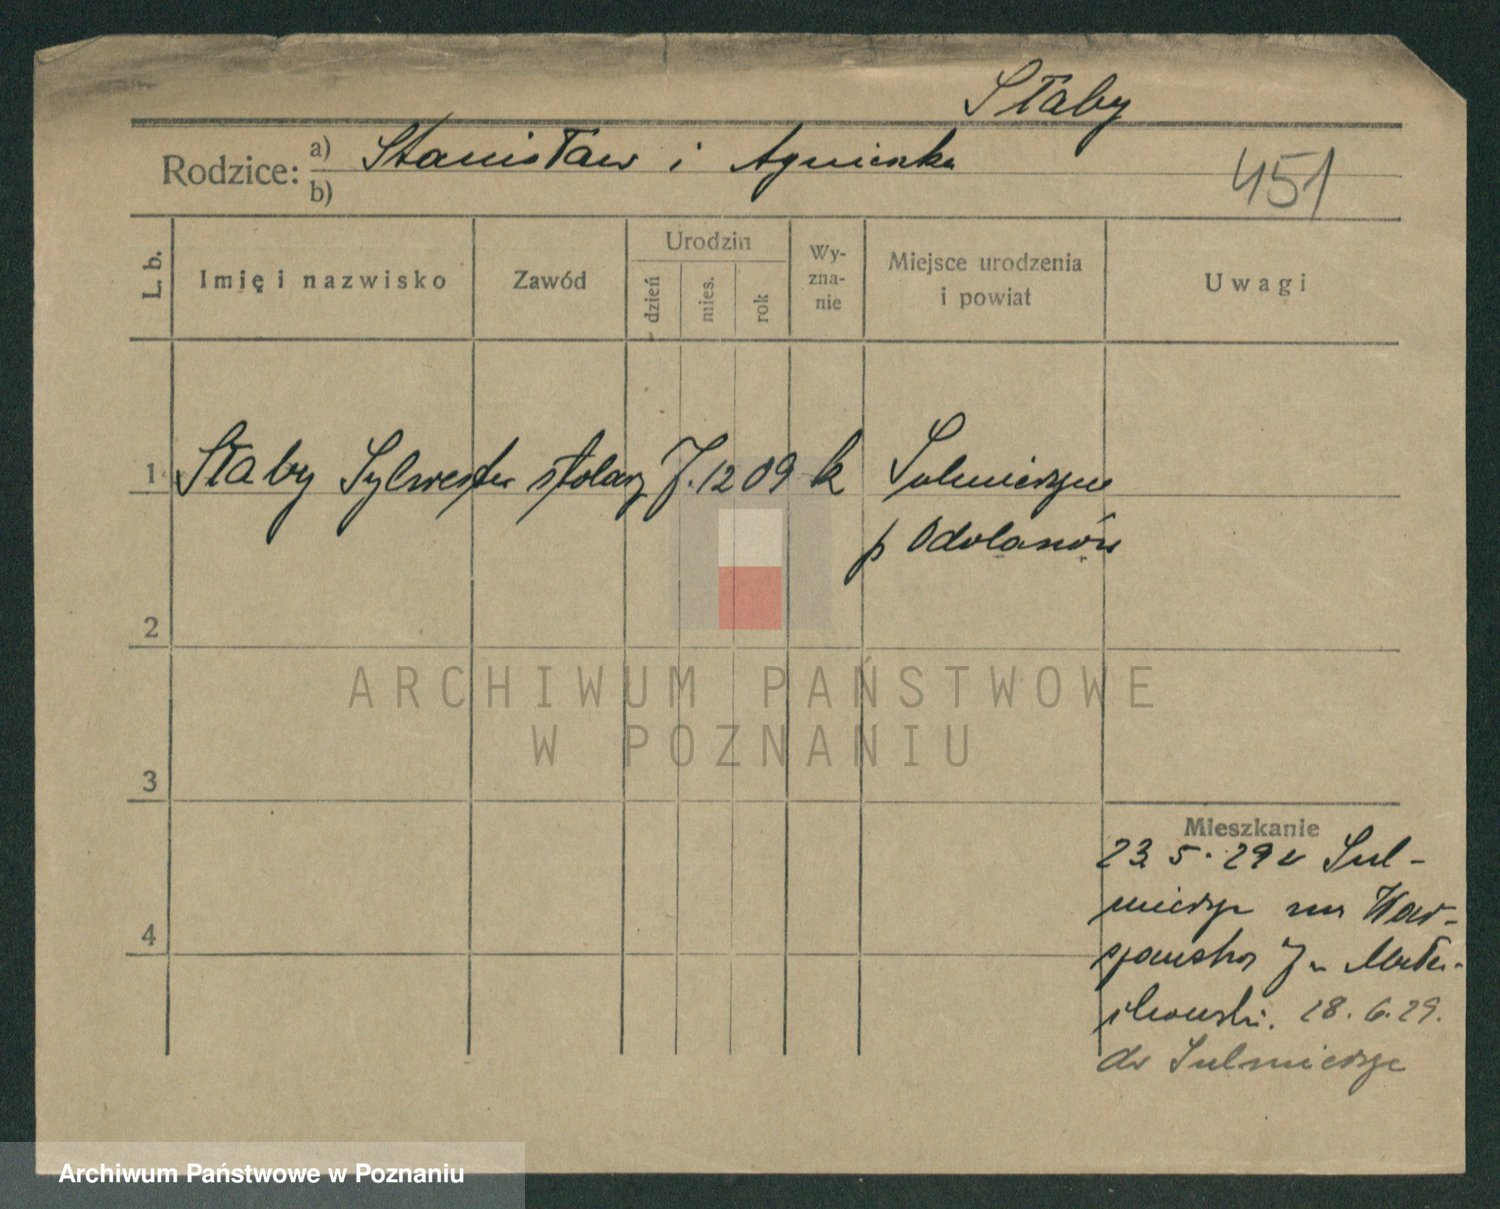 Słaby
Rodzice: a) Stanisław i Agnieszka
b)
451
L. b. Imię i nazwisko Zawód Urodzin dzień mies. rok Wy-zna-nie Miejsce urodzenia i powiat Uwagi
1 Słaby Sylwester stolarz 7. 12 09 k Sulmierzyce
p Odolanów
2
ARCHIWUM PAŃSTWOWE
W POZNANIU
3
Mieszkanie
23. 5. 29 z Sul-
mierzyc na War-
szawska 7
28. 6. 29.
do Sulmierzyc
4
Archiwum Państwowe w Poznaniu